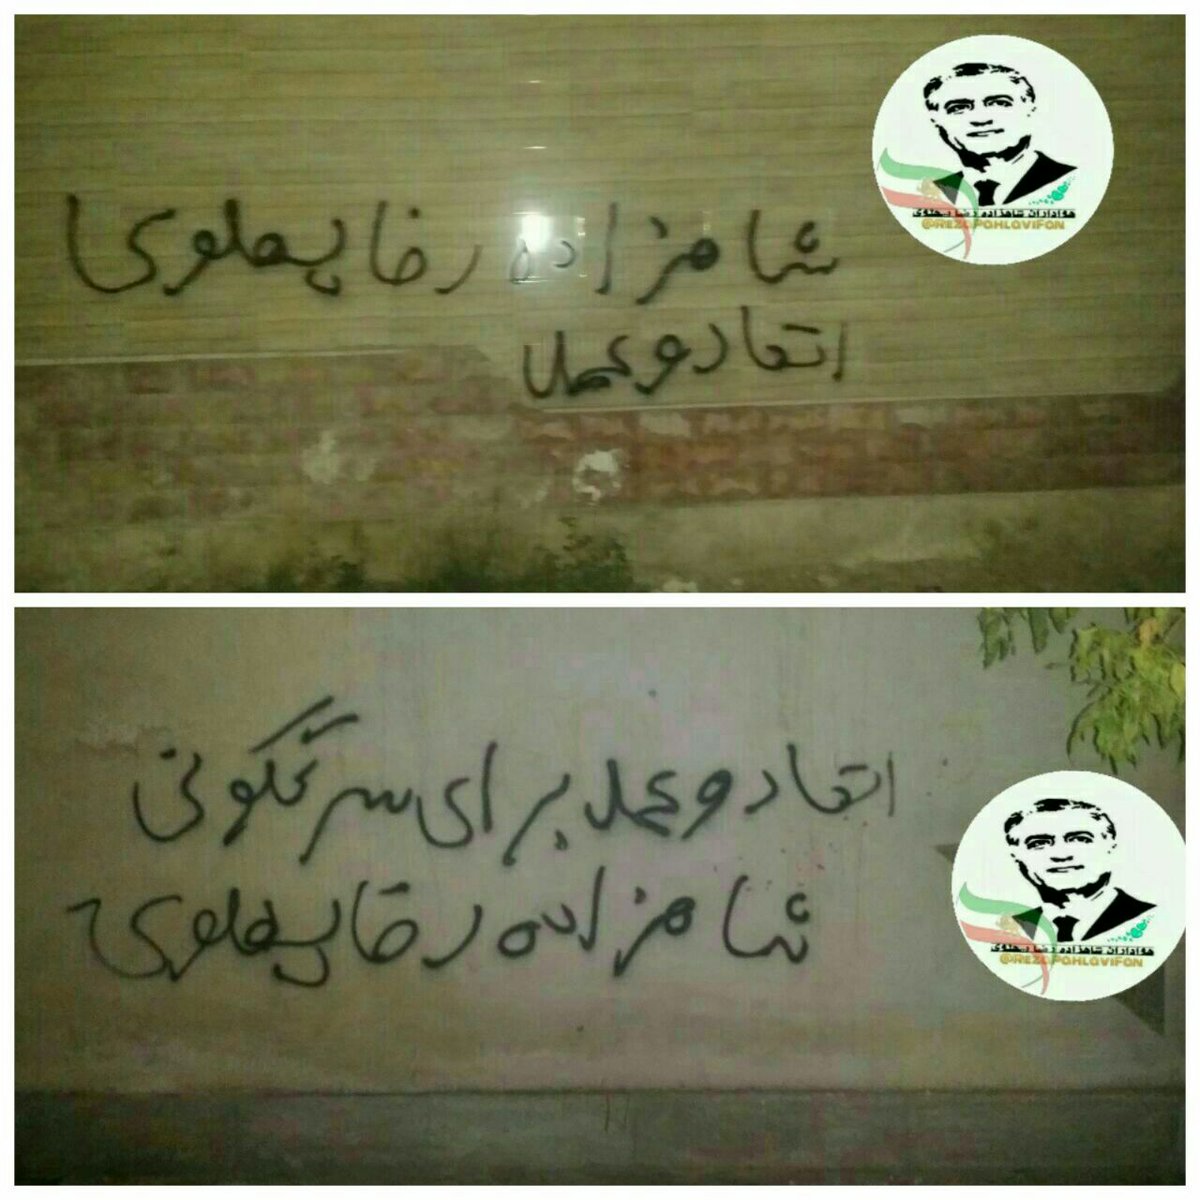 شاهزاده رضا پهلوی
اتحاد و عمل
هواداران شاهزاده رضا پهلوی
@REZAPAHLAVIFAN
اتحاد و عمل برای سرنگونی
شاهزاده رضا پهلوی
هواداران شاهزاده رضا پهلوی
@REZAPAHLAVIFAN